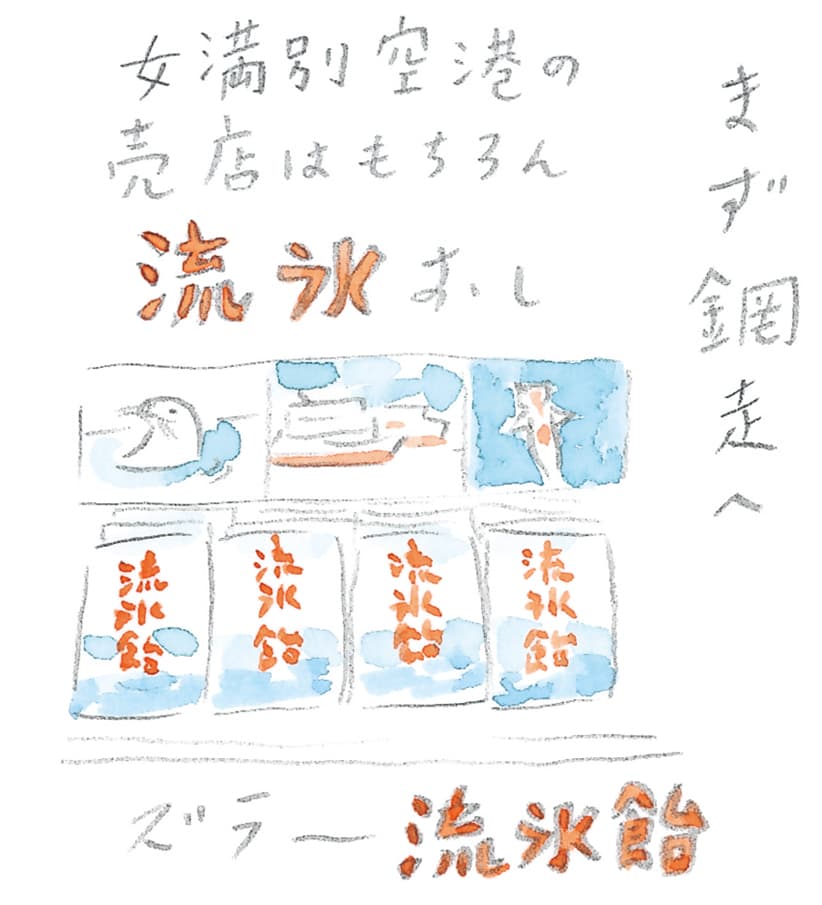 まず鋼走へ
女満別空港の
売店はもちろん
流氷おし
流氷飴
流氷飴
流氷飴
流氷飴
ズラー流氷飴